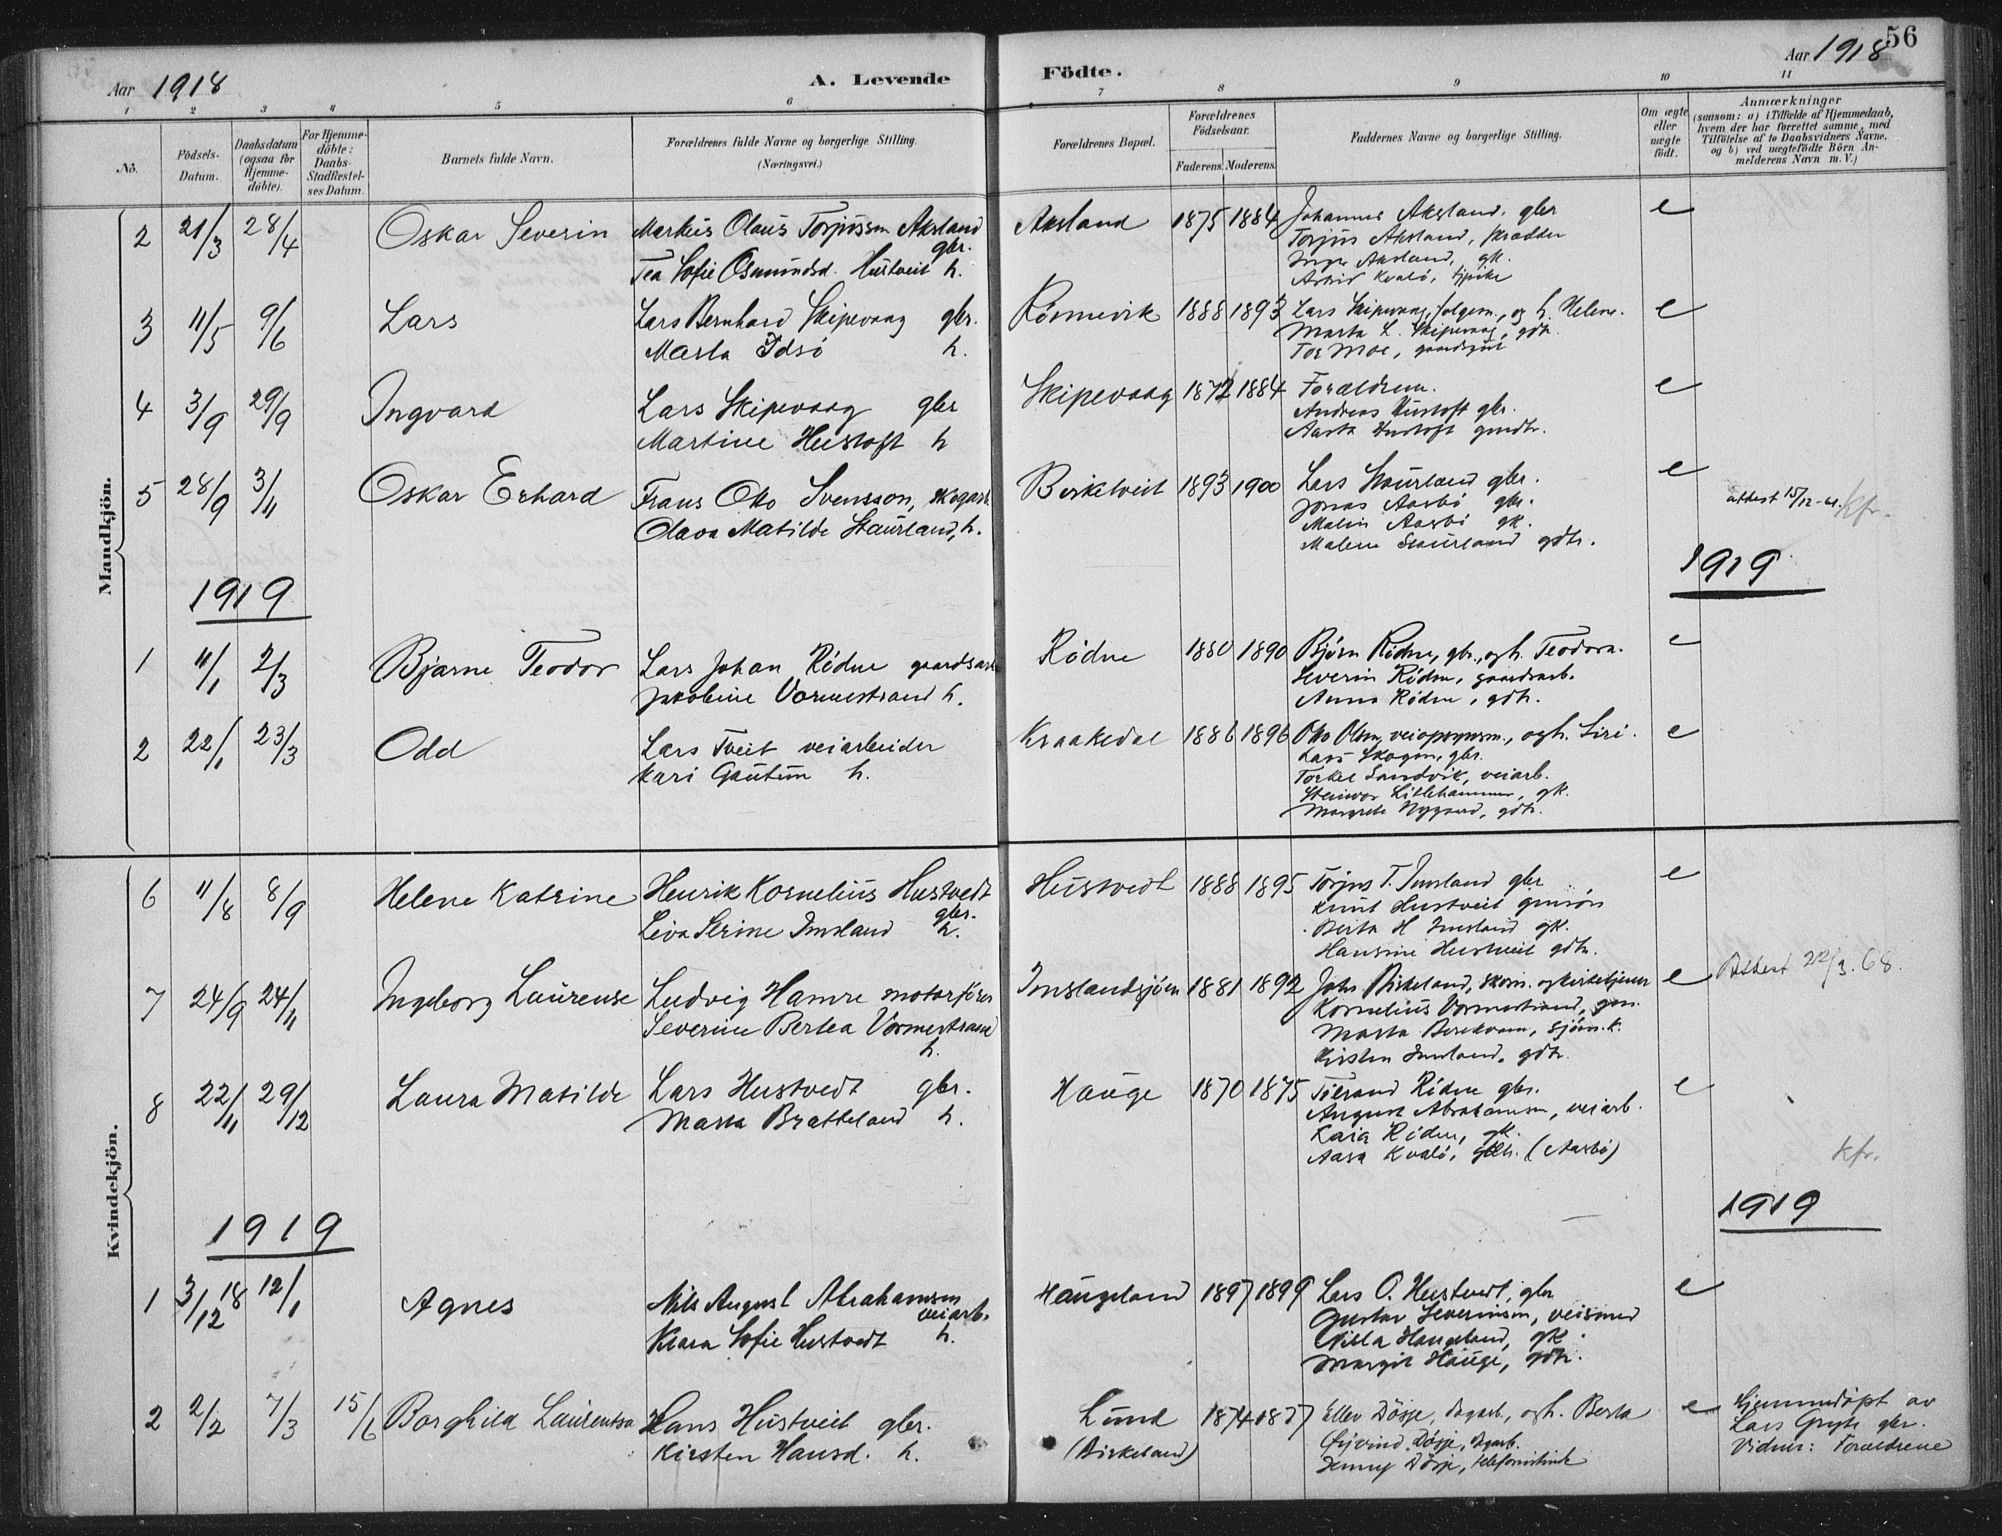 Aar 1918
A. Levende
Födte.
Aar 1918
56
1 2 3 4 5 6 7 8 9 10 11
No.
Födsels-Datum.
Daabsdatum (ogsaa for Hjemme-döbte).
For Hjemme-döbte: Daabs-Stadfæstel-ses Datum.
Barnets fulde Navn.
Forældrenes fulde Navne og borgerlige Stilling.
(Næringsvei.)
Forældrenes Bopæl.
Forældrenes Födselsaar.
Faderens. Moderens.
Faddernes Navne og borgerlige Stilling.
Om ægte eller uægte födt.
Anmærkninger
(saasom: a) i Tilfælde af Hjemmedaab, hvem der har forrettet samme, med Tilföielse af to Daabsvidners Navne, og b) ved uægtefödte Börn An-melderens Navn m. V.)
Mandkjön.
2 21/3 28/4 Oskar Severin Markus Olaus Torjussen Aksland gbr. Aksland 1875 1884 Johannes Aksland, gbr e
Tea Sofie Osmundsd. Hustveit h. Torjus Aksland, skrædder
Inger Aksland, gk.
Astrid Kvalø, tjpike
3 11/5 9/6 Lars Lars Bernhard Skipevaag gbr. Rønnevik 1888 1893 Lars Skipevaag, folgem., og h. Helene. e
Marta Idsø h. Marta L. Skipevaag, gdtr.
Tor Moe, gaardsgut
4 3/9 29/9 Ingvard Lars Skipevaag gbr Skipevaag 1872 1884 Forældrene. e
Martine Hustoft h Andreas Hustoft gbr.
Aasta Hustoft gmdtr.
5 28/9 3/11 Oskar Erhard Frans Otto Svensson, skogarb. Birkeveit 1893 1900 Lars Staurland gbr. e attest 15/12-61. kfr.
Olava Matilde Staurland, h. Jonas Aarbø gbr.
Malin Aasbø gk.
Malene Staurland gdtr.
1919 1919
1 11/1 2/3 Bjarne Teodor Lars Johan Rødne gaardsarb Rødne 1880 1890 Bjørn Rødne, gbr., og h. Teodora. e
Jakobine Vormestrand h. Severin Rødne, gaardsarb.
Anna Rødne, gdtr.
2 22/1 23/3 Odd Lars Tveit veiarbeider Kraakedal 1886 1896 Otto Olsen, veiopsynsm., og h. Siri. e
Kari Gautun h. Lars Skogen, gbr.
Torkel Sandvik, veiarb.
Steinvor Lillehammer, gk.
Margrete Nygaard, gdtr.
Kvindekjön.
6 11/8 8/9 Helene Katrine Henrik Kornelius Hustvedt gbr. Hustvedt 1888 1895 Torjus T. Imsland gbr e
Liva Serine Imsland h. Knut Hustveit gmsøn
Berta H Imsland gk.
Hansine Hustveit gdtr.
7 24/9 24/11 Ingeborg Laurense Ludvig Hamre motorfører Imslandsjøen 1881 1892 Johs Birkeland, skom. og kirketjener e Attest 22/3. 68.
Severine Bertea Vormestrand h. Kornelius Vormestrand,
Marta Berekvam, sjøm.k.
Kirsten Imsland, gdtr.
8 22/11 29/12 Laura Matilde Lars Hustvedt gbr. Hauge 1870 1875 Torand Rødne gbr. e
Marta Bratteland h. August Abrahamsen, veiarb.
Kaia Rødne, gk.
Aasa Kvalø, (Aarbø) kfr.
1919 1919
1 3/12 18 12/1 Agnes Nils August Abrahamsen veiarb. Haugeland 1897 1899 Lars O. Hustvedt, gbr e
Klara Sofie Hustvedt h. Gustav Severinsen, veismed
Gilla Haugeland, gk.
Margit Hauge, gdtr.
2 2/2 7/3 15/6 Borghild Laurentsa Hans Hustveit gbr. Lund 1874 1877 Ellev Døsje, dagarb., og h. Berta e Hjemmedøpt av
Kirsten Hansd. h. (Birkeland) Øivind Døsje, dagarb. Lars Gryte gbr.
Jenny Døsje, telefonistinde Vidner: Forældrene